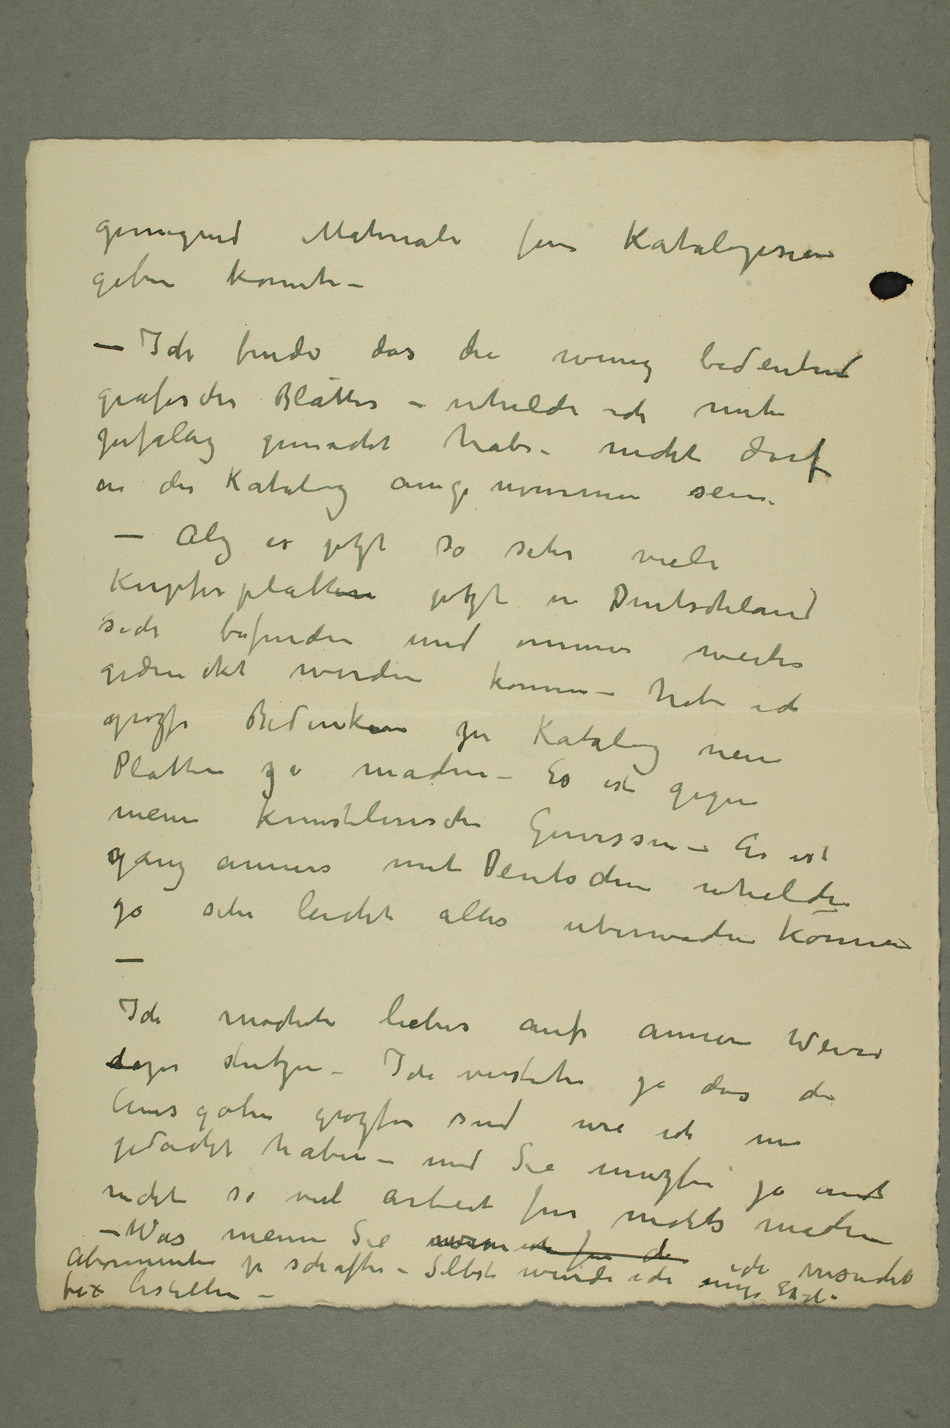 genugend Materiale fur Katalogisieren
geben konnte –
– Ich finde das die wenig bedeutend
grafische Blätter – whelde ich mir
zufälig gemacht habe – nicht darf
in der Katalog aufgenommen sein.
– Als es jetzt so sehr viele
Kupferplatten jetzt in Deutschland
sich befinden und immer weiter
gedruckt werden konnen – habe ich
grozse Bedenken zu Katalog neue
Platten zu machen – Es ist gegen
meine kunstlerische Gewissen – Es ist
ganz anners mit Deutschen whelche
ja sehr leicht alles uberwachen können
–
Ich mochte lieber auf annere Weise
dazu stutzen – Ich verstehe ja das die
Ausgaben grozser sind wie ich mir
gedacht haben – und Sie muzsen ja auch
nicht so viel arbeit fur nichts machen
– Was meinen Sie wenn ich fur die ich versucht
Abonnenten zu schaffen – Selbst wurde ich einige Expl.
fix bestellen –